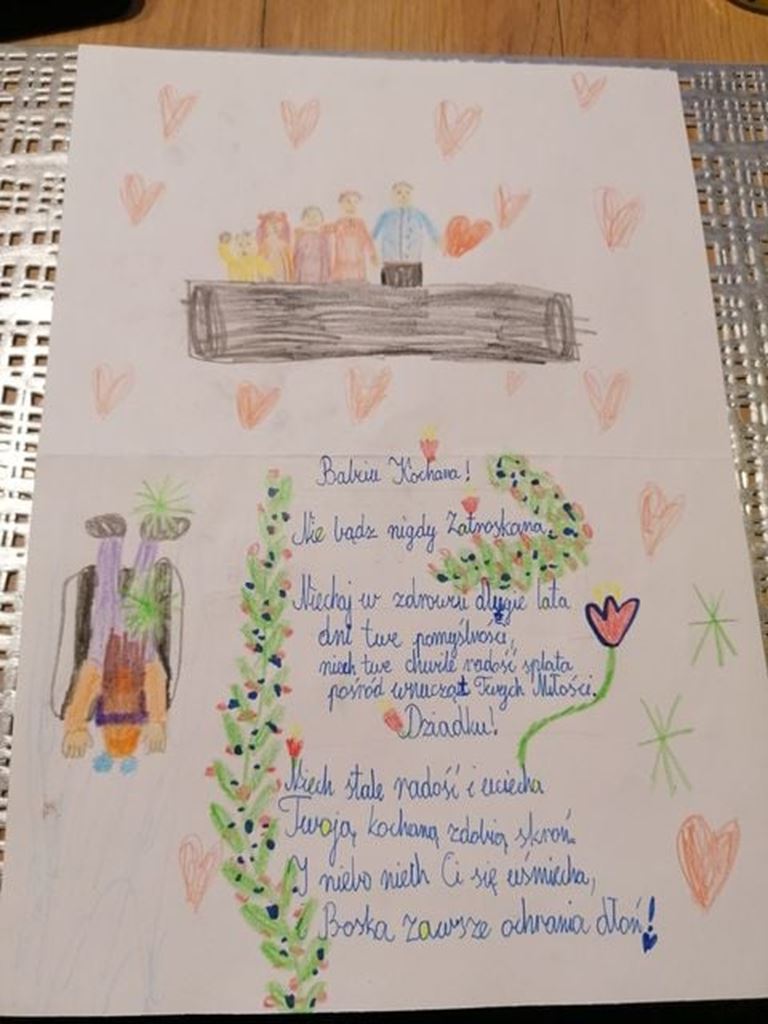 Babciu Kochana!
Nie bądz nigdy Zatroskana,
Niechaj w zdrowiu długie lata
dni twe pomyślności,
niech twe chwile radość splata
pośród wnucząt Twych Miłości.
Dziadku!
Niech stale radość i uciecha
Twoją kochaną zdobią skroń.
I niebo niech Ci się uśmiecha,
Boska zawsze ochrania dłoń!